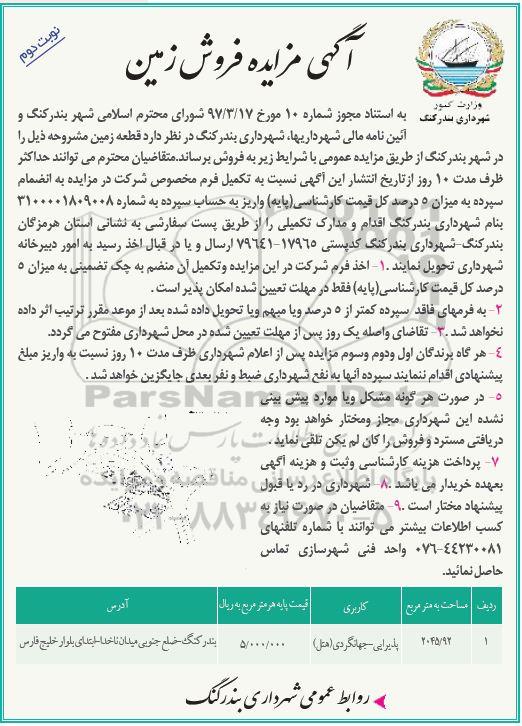 نوبت دوم
آگهی مزایده فروش زمین
وزارت کشور
شهرداری بندرکنگ
به استناد مجوز شماره ۱۰ مورخ ۹۷/۳/۱۷ شورای محترم اسلامی شهر بندرکنگ و
آئین نامه مالی شهرداریها، شهرداری بندرکنگ در نظر دارد قطعه زمین مشروحه ذیل را
در شهر بندرکنگ از طریق مزایده عمومی با شرایط زیر به فروش برساند.متقاضیان محترم می توانند حداکثر
ظرف مدت ۱۰ روز ازتاریخ انتشار این آگهی نسبت به تکمیل فرم مخصوص شرکت در مزایده به انضمام
سپرده به میزان ۵ درصد کل قیمت کارشناسی(پایه) واریز به حساب سپرده به شماره ۳۱۰۰۰۰۱۸۰۹۰۰۸
بنام شهرداری بندرکنگ اقدام و مدارک تکمیلی را از طریق پست سفارشی به نشانی استان هرمزگان
بندرکنگ-شهرداری بندرکنگ کدپستی ۱۷۹۶۵-۷۹۶۴۱ ارسال و یا در قبال اخذ رسید به امور دبیرخانه
شهرداری تحویل نمایند .۱- اخذ فرم شرکت در این مزایده وتکمیل آن منضم به چک تضمینی به میزان ۵
درصد کل قیمت کارشناسی(پایه) فقط در مهلت تعیین شده امکان پذیر است .
۲- به فرمهای فاقد سپرده کمتر از ۵ درصد ویا مبهم ویا تحویل داده شده بعد از موعد مقرر ترتیب اثر داده
نخواهد شد .۳- تقاضای واصله یک روز پس از مهلت تعیین شده در محل شهرداری مفتوح می گردد.
۴- هر گاه برندگان اول ودوم وسوم مزایده پس از اعلام شهرداری ظرف مدت ۱۰ روز نسبت به واریز مبلغ
پیشنهادی اقدام ننمایند سپرده آنها به نفع شهرداری ضبط و نفر بعدی جایگزین خواهد شد .
۵- در صورت هر گونه مشکل ویا موارد پیش بینی
نشده این شهرداری مجاز ومختار خواهد بود وجه
دریافتی مسترد و فروش را کان لم یکن تلقی نماید .
۷- پرداخت هزینه کارشناسی وثبت و هزینه آگهی
بعهده خریدار می باشد .۸- شهرداری در رد یا قبول
پیشنهاد مختار است .۹- متقاضیان در صورت نیاز به
کسب اطلاعات بیشتر می توانند با شماره تلفنهای
۰۷۶-۴۴۲۳۰۰۸۱ واحد فنی شهرسازی تماس
حاصل نمائید.
ParsNamadData
۰۲۱-۸۸۳۴۹۶۷۰-۵
ردیف مساحت به متر مربع کاربری قیمت پایه هر متر مربع به ریال آدرس
۱ ۲۰۴۵/۹۲ پذیرایی-جهانگردی(هتل) ۵/۰۰۰/۰۰۰ بندر کنگ-ضلع جنوبی میدان ناخدا-ابتدای بلوار خلیج فارس
روابط عمومی شهرداری بندرکنگ